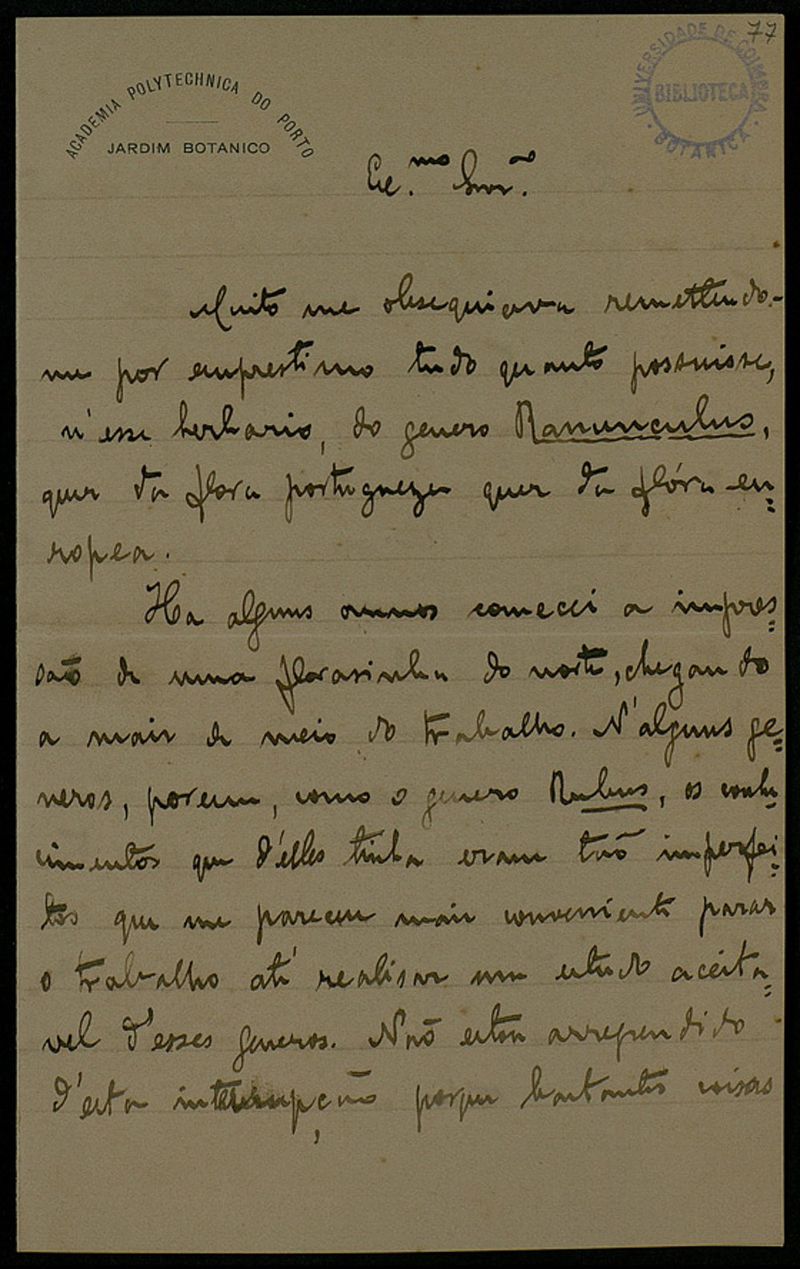 77
UNIVERSIDADE DE COIMBRA
BIBLIOTECA
BOTANICA
ACADEMIA POLYTECHNICA DO PORTO
JARDIM BOTANICO
Ex.mo Snr.
Muito me obsequiava remettendo-
me por emprestimo tudo quanto possuisse,
n'esse herbario, do genero Ranunculus,
quer da flora portugueza quer da flóra eu=
ropea.
Ha alguns annos comecei a impres=
saõ de uma florasinha do norte, chegando
a mais de meio do trabalho. N'alguns ge=
neros, porem, como o genero Rubus, os conhe=
cimentos que d'elles tinha eram taõ imperfei=
tos que me pareceu mais conveniente parar
o trabalho até realisar um estudo aceita=
vel d'esses generos. Naõ estou arrependido
d'esta interrupçaõ porque bastantes coisas